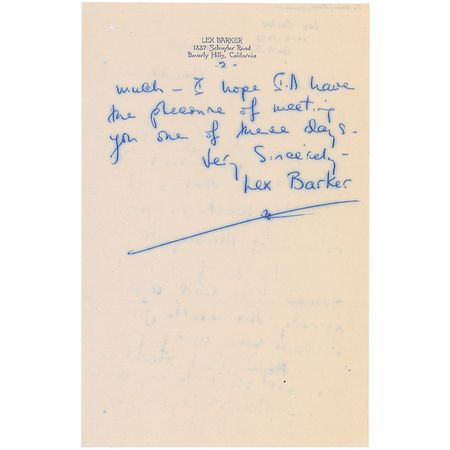 LEX BARKER
1337 Schuyler Road
Beverly Hills, California
- 2 -
much – I hope I'll have
the pleasure of meeting
you one of these days -
Very Sincerely -
Lex Barker